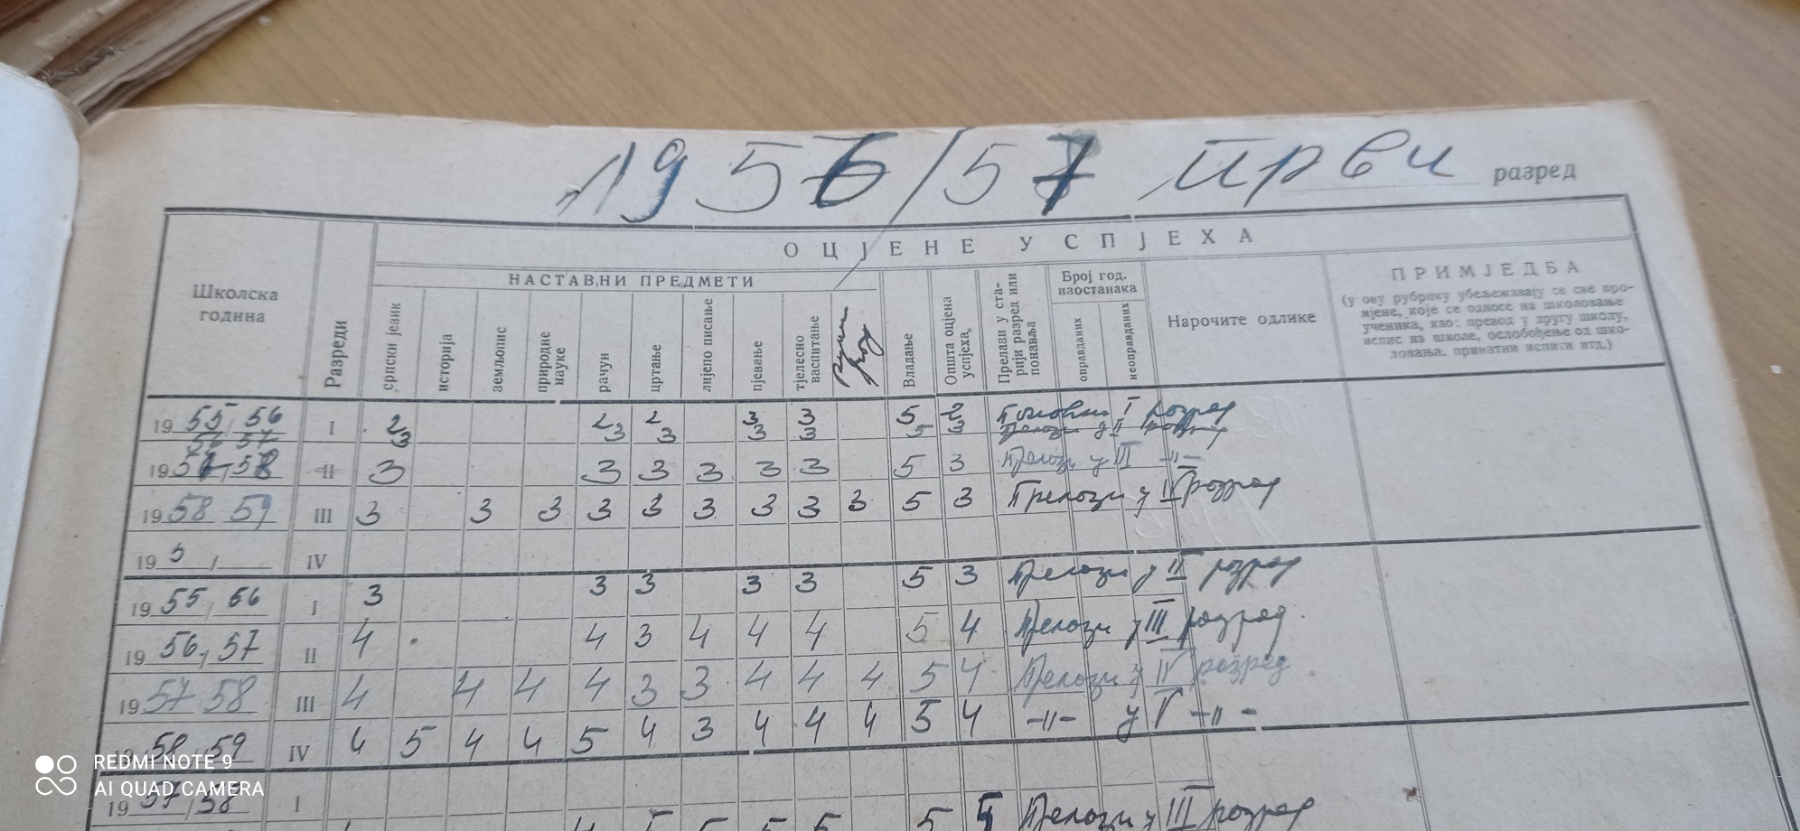 1956/57 први разред
ОЦЈЕНЕ УСПЈЕХА
НАСТАВНИ ПРЕДМЕТИ
Школска година
Разреди
српски језик
историја
земљопис
природне науке
рачун
цртање
лијепо писање
пјевање
тјелесно васпитање
Владање
Општа оцјена успјеха,
Прелази у старији разред или понавља
Број год. изостанака
оправданих
неоправданих
Нарочите одлике
ПРИМЈЕДБА
(у ову рубрику убељежавају се све промјене, које се односе на школовање ученика, као: превод у другу школу, испис из школе, ослобођење од школовања, приватни испити итд.)
19 55, 56 I 2 2 2 3 3 5 2 I разред
56 57 3 3 3 3 3 5 3 Прелази у II разред
19 57, 58 II 3 3 3 3 3 3 5 3 Прелази у III -"-
19 58 59 III 3 3 3 3 3 3 3 3 3 5 3 Прелази у IV разред
19 5 , IV
19 55, 56 I 3 3 3 3 3 5 3 Прелази у II разред
19 56, 57 II 4 4 3 4 4 4 5 4 Прелази у III разред
19 57 58 III 4 4 4 4 3 3 4 4 4 5 4 Прелази у IV разред
19 58, 59 IV 4 5 4 4 5 4 3 4 4 4 5 4 -"- у V -"-
19 57/58 I
5 5 Прелази у III разред
REDMI NOTE 9
AI QUAD CAMERA